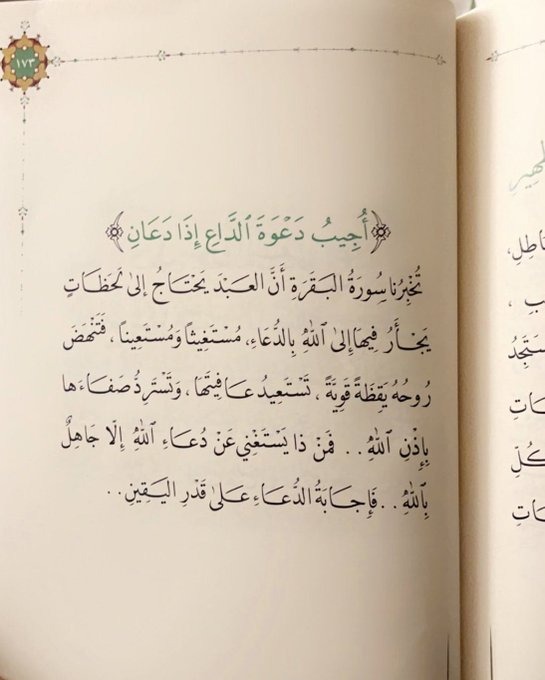 ١٧٣
﴿أُجِيبُ دَعْوَةَ ٱلدَّاعِ إِذَا دَعَانِ﴾
تُخْبِرُنا سُورَةُ البَقَرَةِ أَنَّ العَبْدَ يَحْتَاجُ إلىٰ لَحَظَاتٍ
يَجْأَرُ فِيهَا إِلىٰ اللهِ بِالدُّعَاءِ، مُسْتَغِيثاً وَمُسْتَعِيناً، فَتَنْهَضَ
رُوحُهُ يَقِظَةً قَوِيَّةً، تَسْتَعِيدُ عَافِيَتَهَا، وَتَسْتَرِدُّ صَفَاءَهَا
بِإِذْنِ اللهِ.. فَمَنْ ذا يَسْتَغْنِي عَنْ دُعَاءِ اللهِ إِلّا جَاهِلٌ
بِاللهِ.. فَإِجَابَةُ الدُّعَاءِ عَلىٰ قَدْرِ اليَقِينِ..